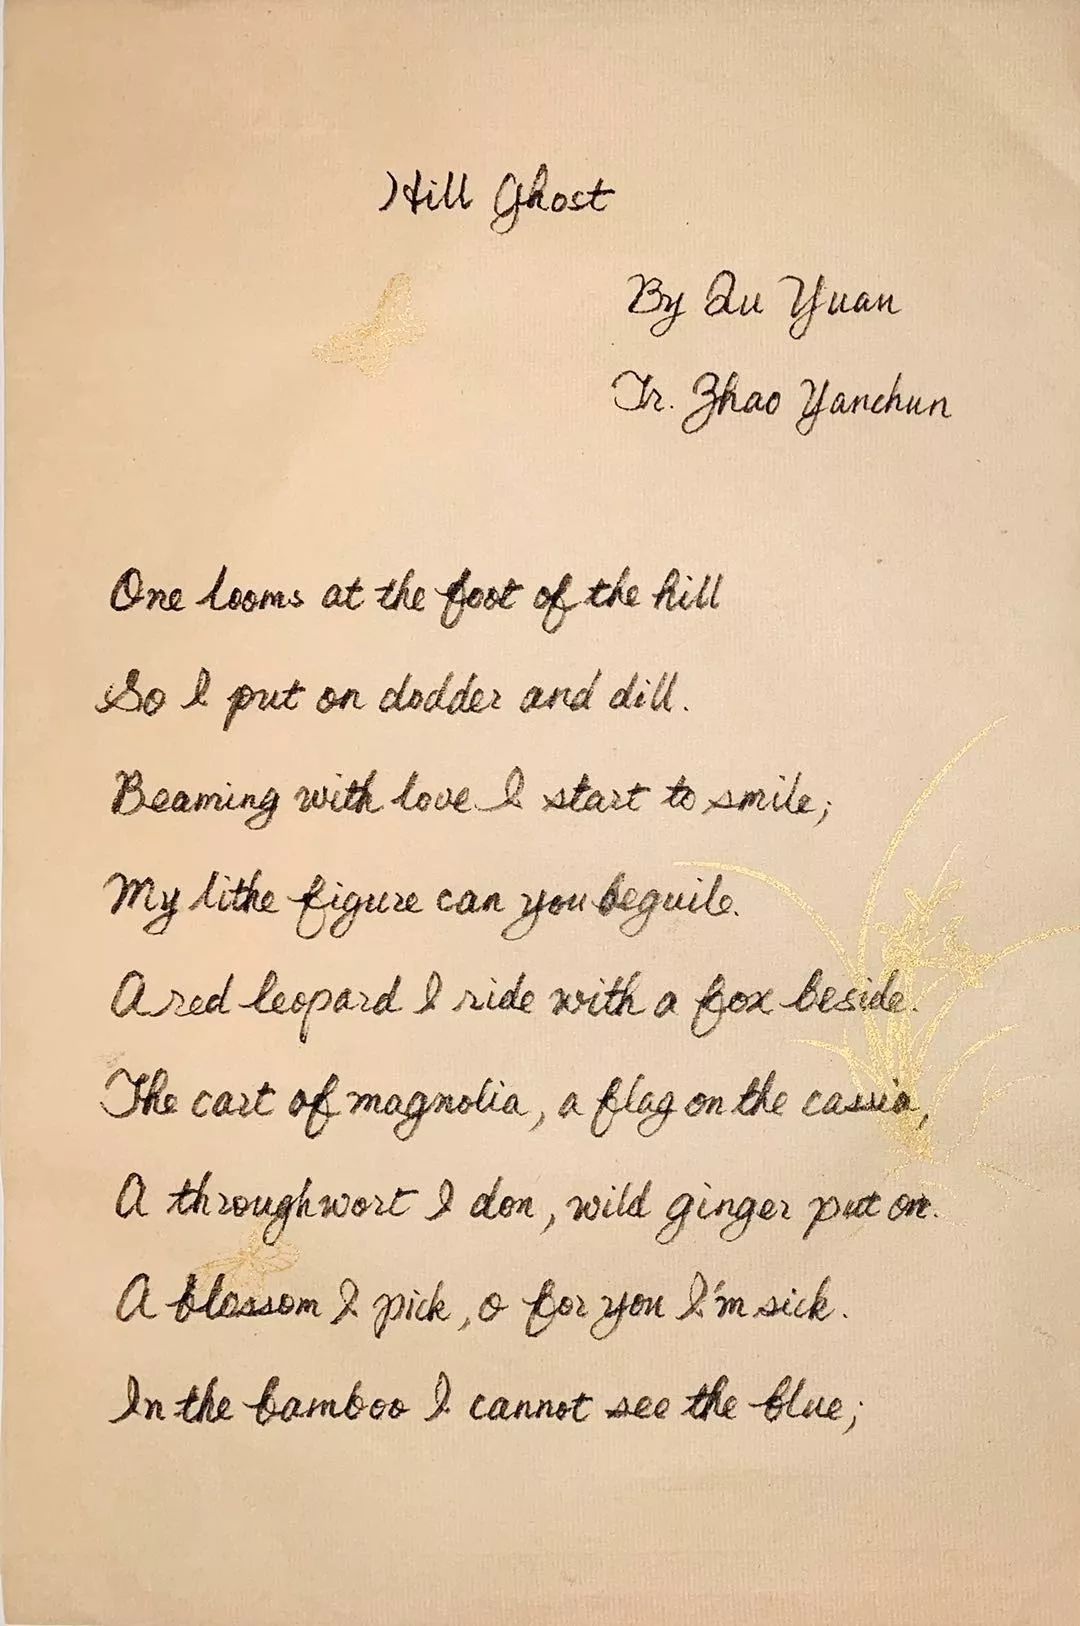 Hill Ghost
By Qu Yuan
Tr. Zhao Yanchun
One looms at the foot of the hill
So I put on dodder and dill.
Beaming with love I start to smile;
My lithe figure can you beguile.
A red leopard I ride with a fox beside.
The cart of magnolia, a flag on the cassia,
A throughwort I don, wild ginger put on.
A blossom I pick, o for you I'm sick.
In the bamboo I cannot see the blue;